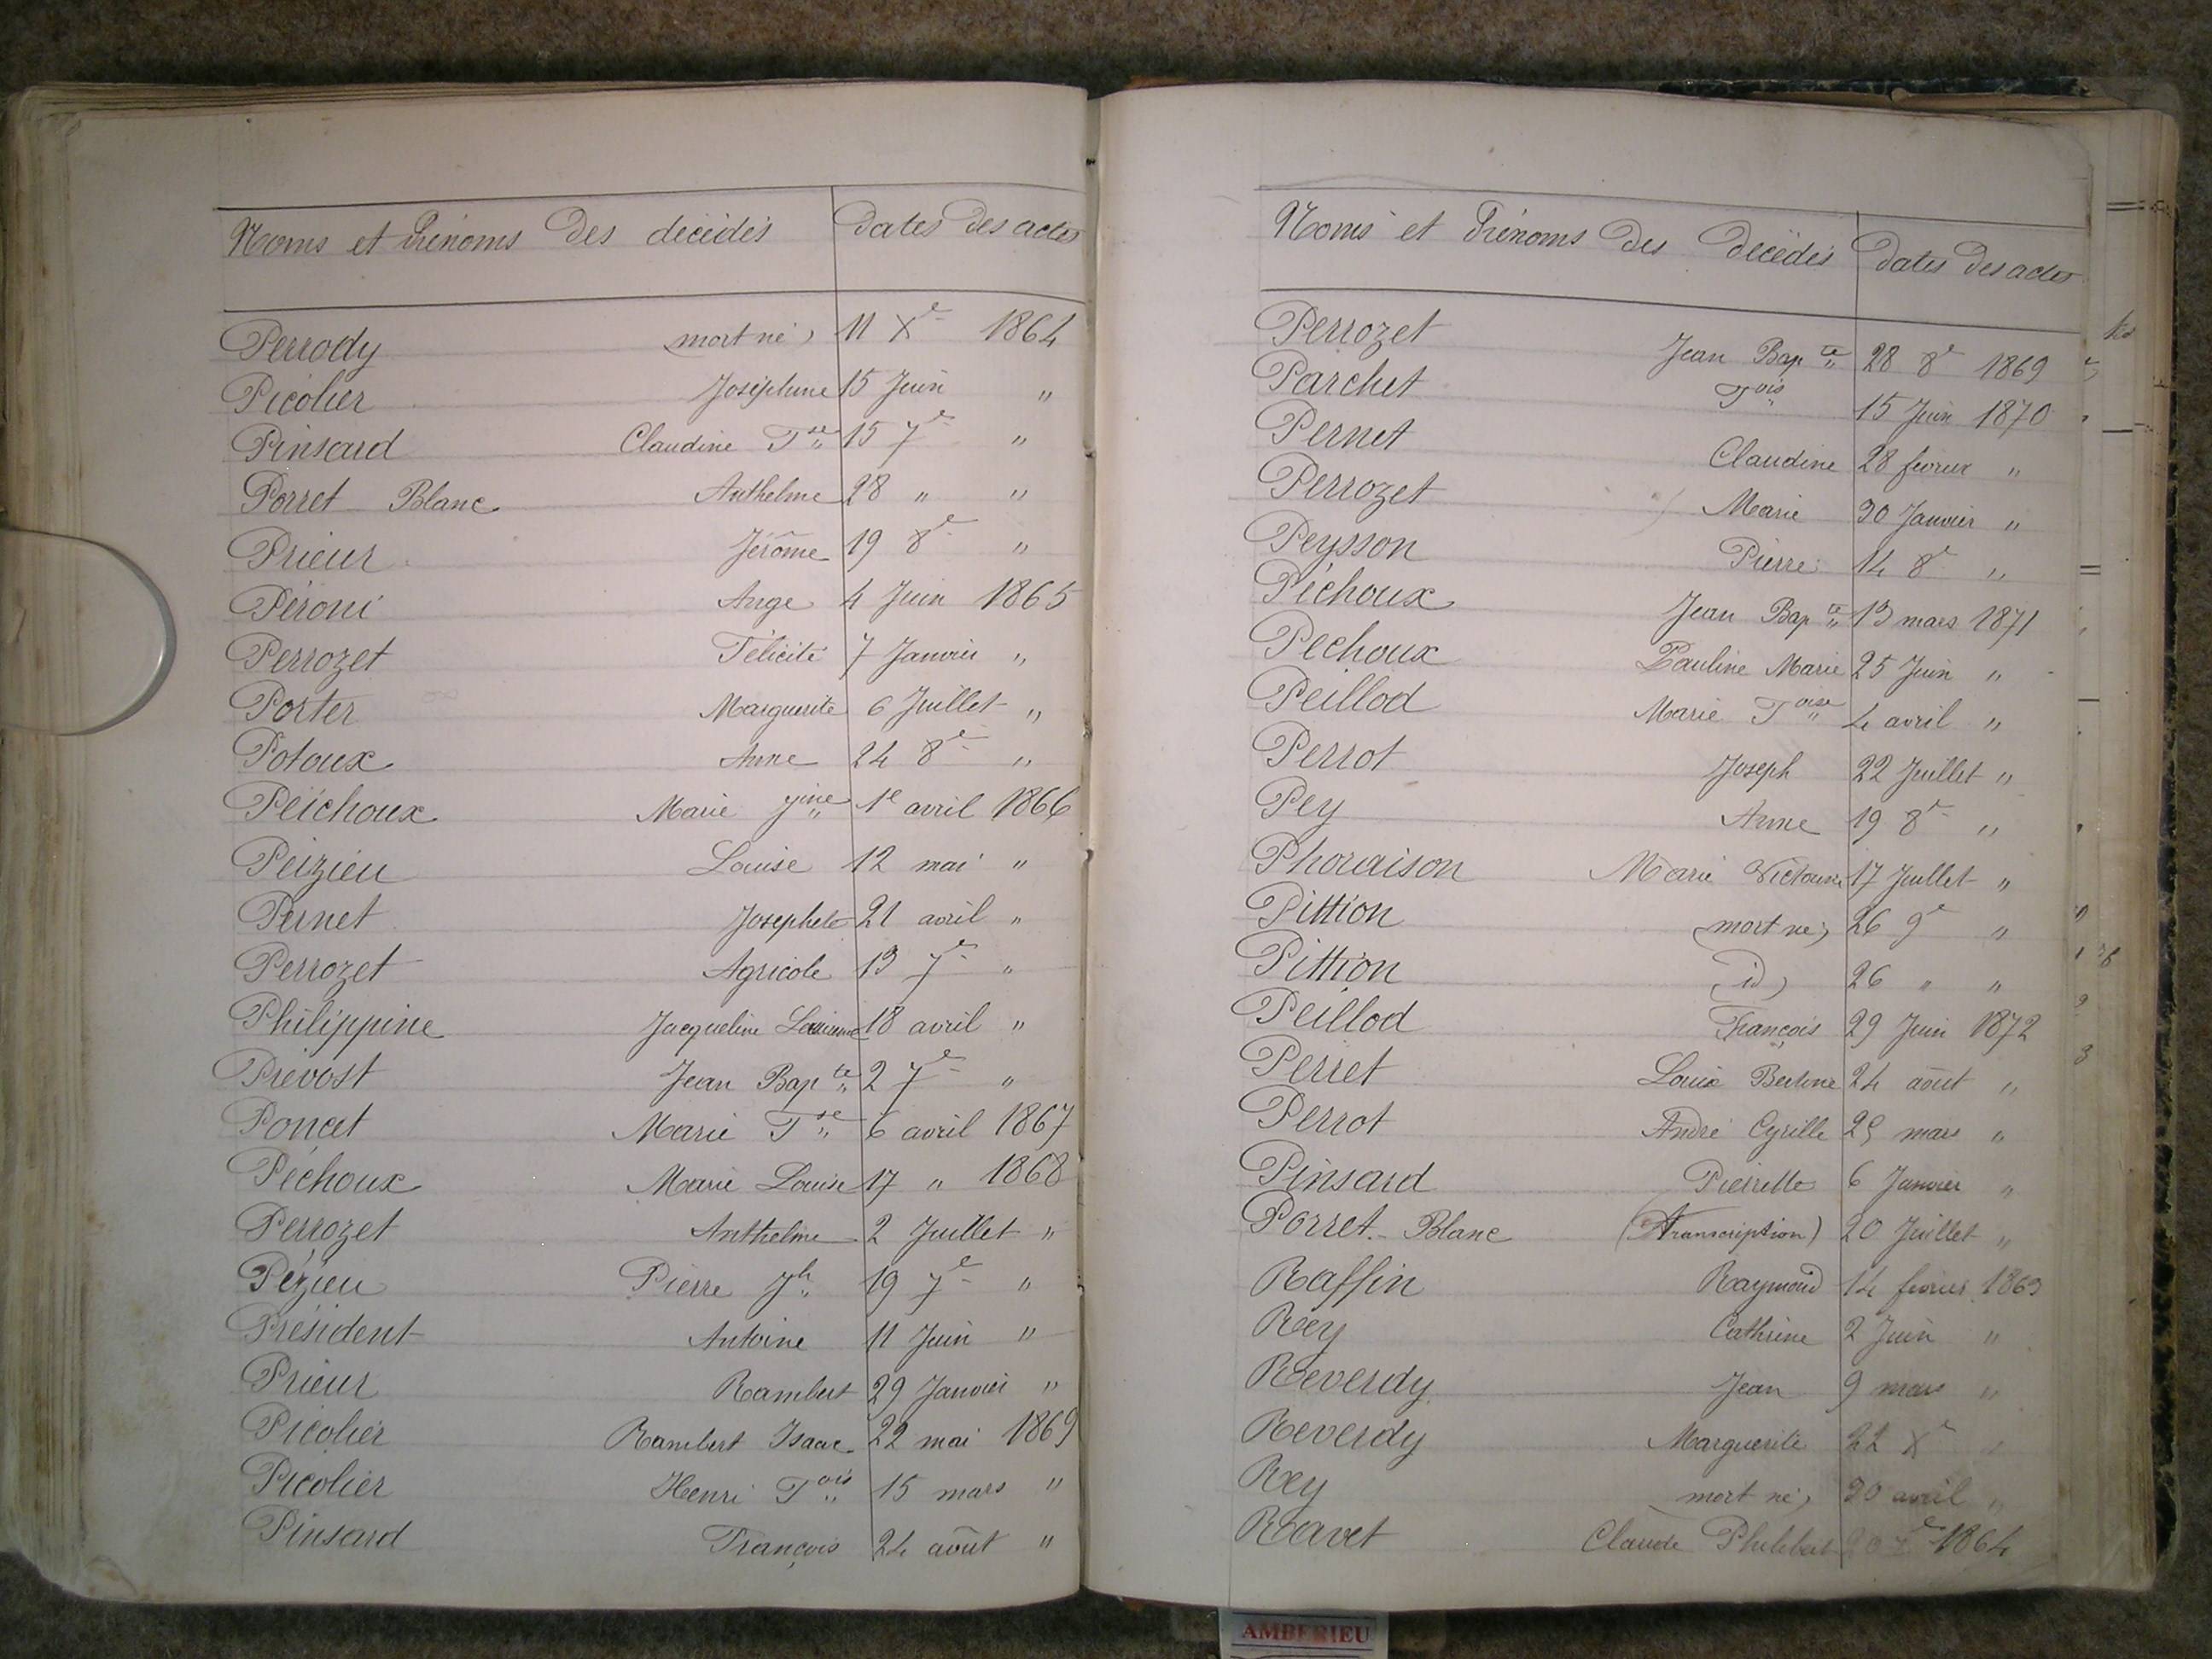 Noms et Prénoms des décédés Dates des actes
Perrody (mort né) 11 Xe 1864
Picolier Joséphine 15 Juin "
Pinsard Claudine Fse 15 7e "
Porret-Blanc Anthelme 28 " "
Prieur Jérôme 19 8e "
Péroni Ange 4 Juin 1865
Perrozet Félicité 7 Janvier "
Porter Marguerite 6 Juillet "
Potoux Anne 24 8e "
Péichoux Marie Jine 1e avril 1866
Peizieu Louise 12 mai "
Pernet Josephete 21 avril "
Perrozet Agricole 13 7e "
Philippine Jacqueline 18 avril "
Prévost Jean Bapte 2 7e "
Poncet Marie Fse 6 avril 1867
Péchoux Marie Louise 17 " 1868
Perrozet Anthelme 2 Juillet "
Pézieu Pierre Jh 19 7e "
Président Antoine 11 Juin "
Prieur Rambert 29 Janvier "
Picolier Rambert Isaac 22 mai 1869
Picolier Henri Fois 15 mars "
Pinsard François 24 août "
Noms et Prénoms des décédés Dates des actes
Perrozet Jean Bapte 28 8e 1869
Parchet Fois 15 Juin 1870
Pernet Claudine 28 fevrier "
Perrozet Marie 30 Janvier "
Peysson Pierre 14 8e "
Péchoux Jean Bapte 13 mars 1871
Pechoux Pauline Marie 25 Juin "
Peillod Marie Foise 4 avril "
Perrot Joseph 22 Juillet "
Pey Anne 19 8e "
Phoraison Marie 17 Juillet "
Pittion (mort né) 26 9e "
Pittion (id) 26 " "
Peillod François 29 Juin 1872
Perret Louis 24 août "
Perrot André Cyrille 25 mars "
Pinsard Pierrette 6 Janvier "
Porret-Blanc (Transcription) 20 Juillet "
Raffin Raymond 14 fevrier 1863
Rey Cathrine 2 Juin "
Reverdy Jean 9 mars "
Reverdy Marguerite 22 Xe "
Rey (mort né) 30 avril "
Ravet Claude Philibert 1864
AMBERIEU